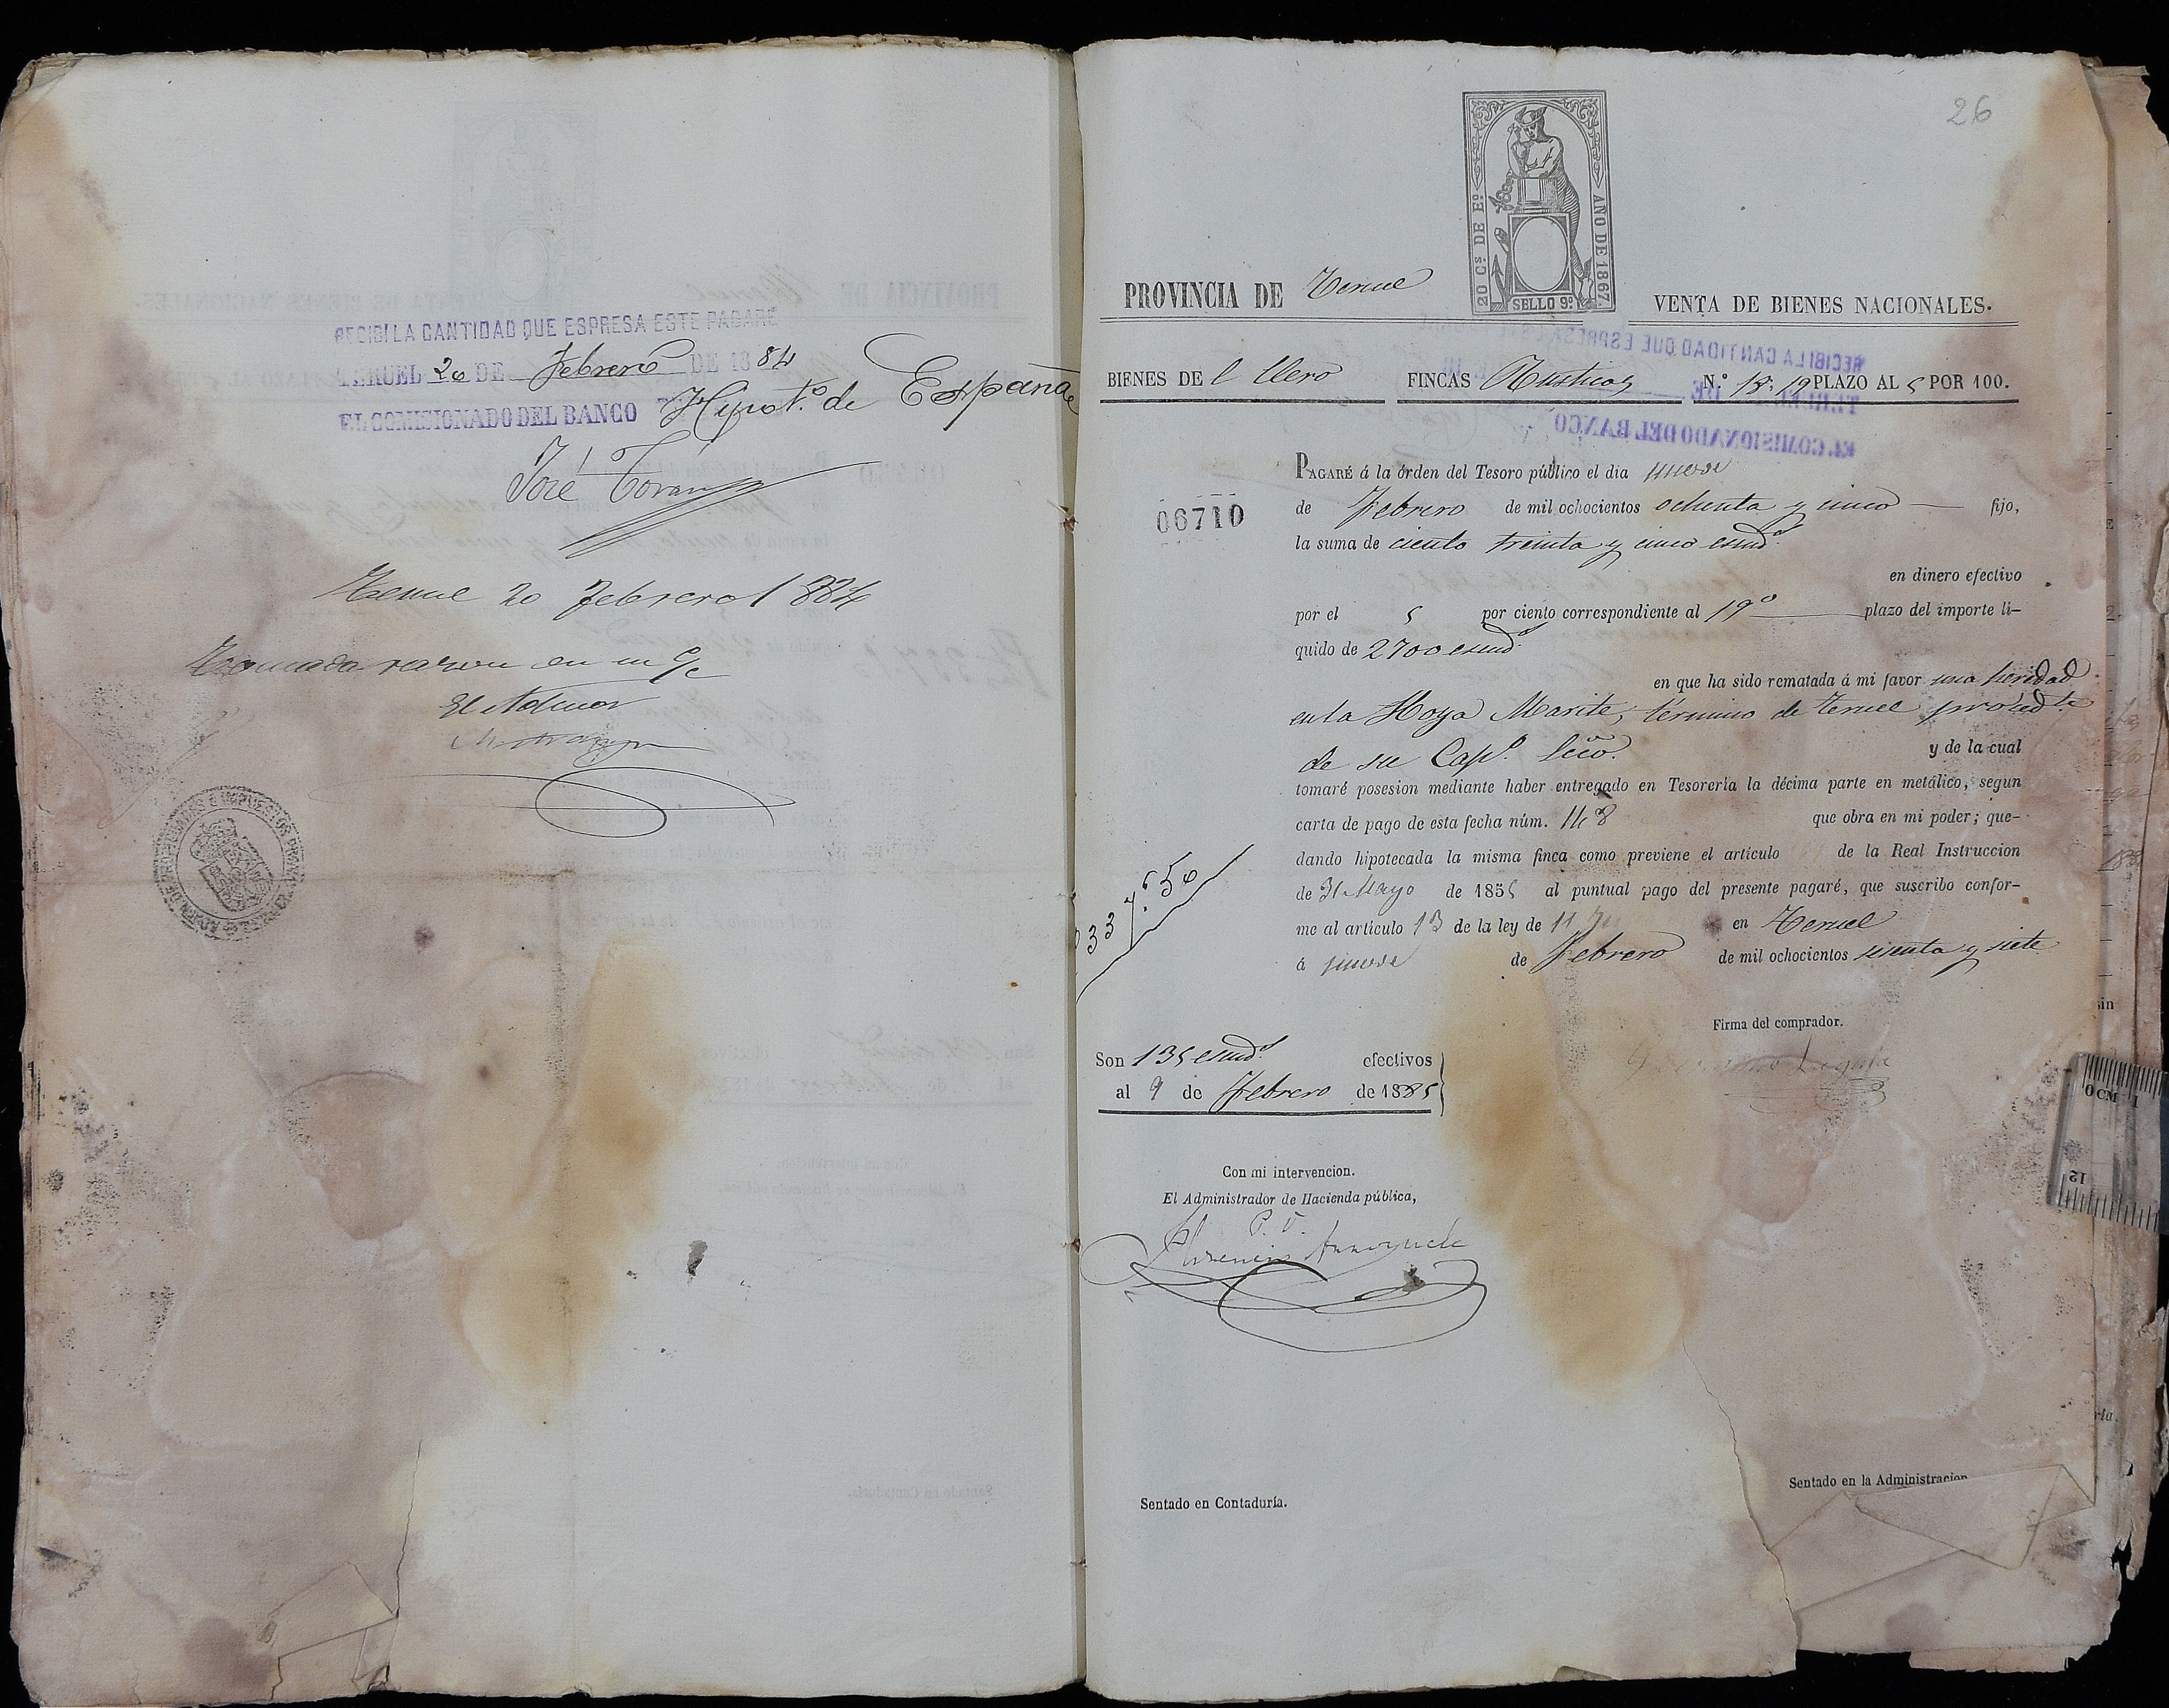 RECIBI LA CANTIDAD QUE ESPRESA ESTE PAGARÉ
TERUEL 20 DE Febrero DE 1884
EL COMISIONADO DEL BANCO Hipot.º de España
José
Teruel 20 Febrero 1884
Tomada razon en
El Admor
26
20 Cs DE Eº
AÑO DE 1867.
SELLO 9º
PROVINCIA DE Teruel
VENTA DE BIENES NACIONALES.
BIENES DE l Clero FINCAS Rusticas N.º 18, 19 PLAZO AL 5 POR 100.
PAGARÉ á la órden del Tesoro público el dia nueve
06710
de Febrero de mil ochocientos ochenta y cinco fijo,
la suma de ciento treinta y cinco escud.s
en dinero efectivo
por el 5 por ciento correspondiente al 19º plazo del importe lí-
quido de 2700 escud.s
en que ha sido rematada á mi favor una heredad
en la Hoya Marite, término de Teruel proced.te
de su Cap.º Ecco.
y de la cual
tomaré posesion mediante haber entregado en Tesorería la décima parte en metálico, segun
carta de pago de esta fecha núm. 148 que obra en mi poder; que-
dando hipotecada la misma finca como previene el artículo de la Real Instruccion
de 31 Mayo de 1855 al puntual pago del presente pagaré, que suscribo confor-
me al artículo 13 de la ley de 11 en Teruel
á nueve de Febrero de mil ochocientos sesenta y siete
337.50
Firma del comprador.
Son 135 escud.s efectivos
al 9 de Febrero de 1885
Con mi intervencion.
El Administrador de Hacienda pública,
Sentado en Contaduría.
Sentado en la Administracion